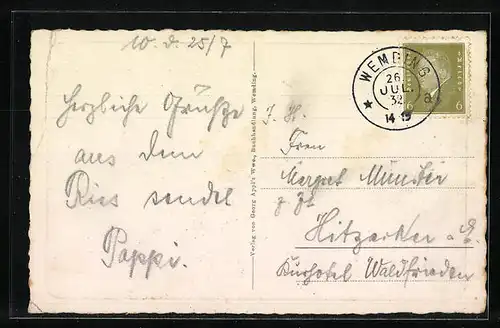 W. d. 25/7
Herzliche Grüße
aus dem
Ries sendet
Pappi.
Verlag von Georg Appl's Wwe., Buchhandlung, Wemding.
WEMDING
26
JUL
32
14-15
a
6 6
I. H.
Frau
Margret Münster
z. Zt.
Hitzacker a. E.
Kurhotel Waldfrieden